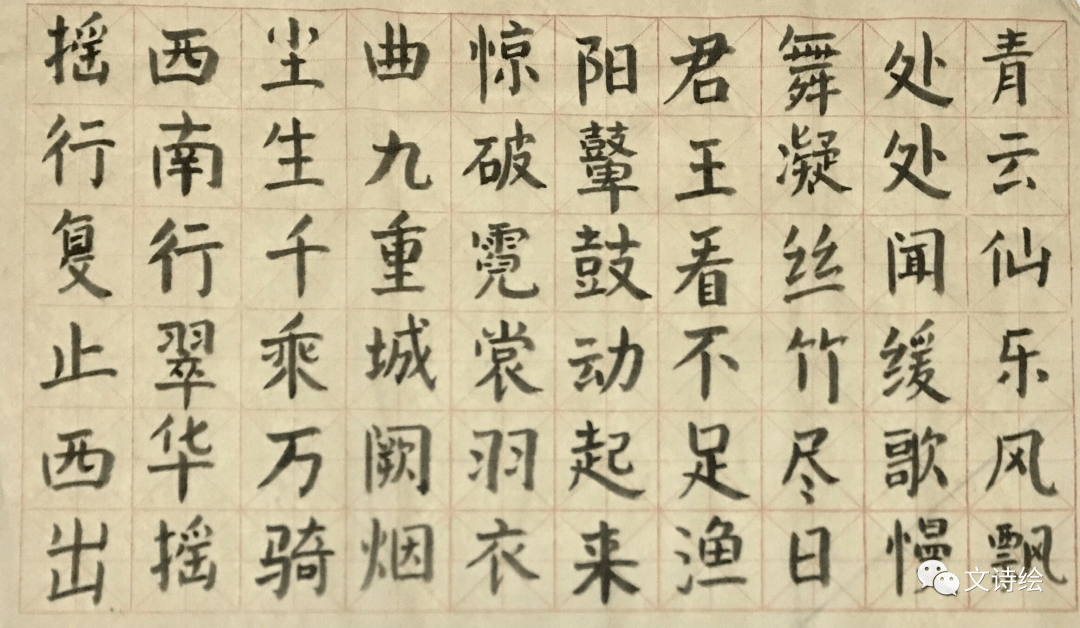 青云仙乐风飘
处处闻缓歌慢
舞凝丝竹尽日
君王看不足渔
阳鼙鼓动起来
惊破霓裳羽衣
曲九重城阙烟
尘生千乘万骑
西南行翠华摇
摇行复止西出
文诗绘